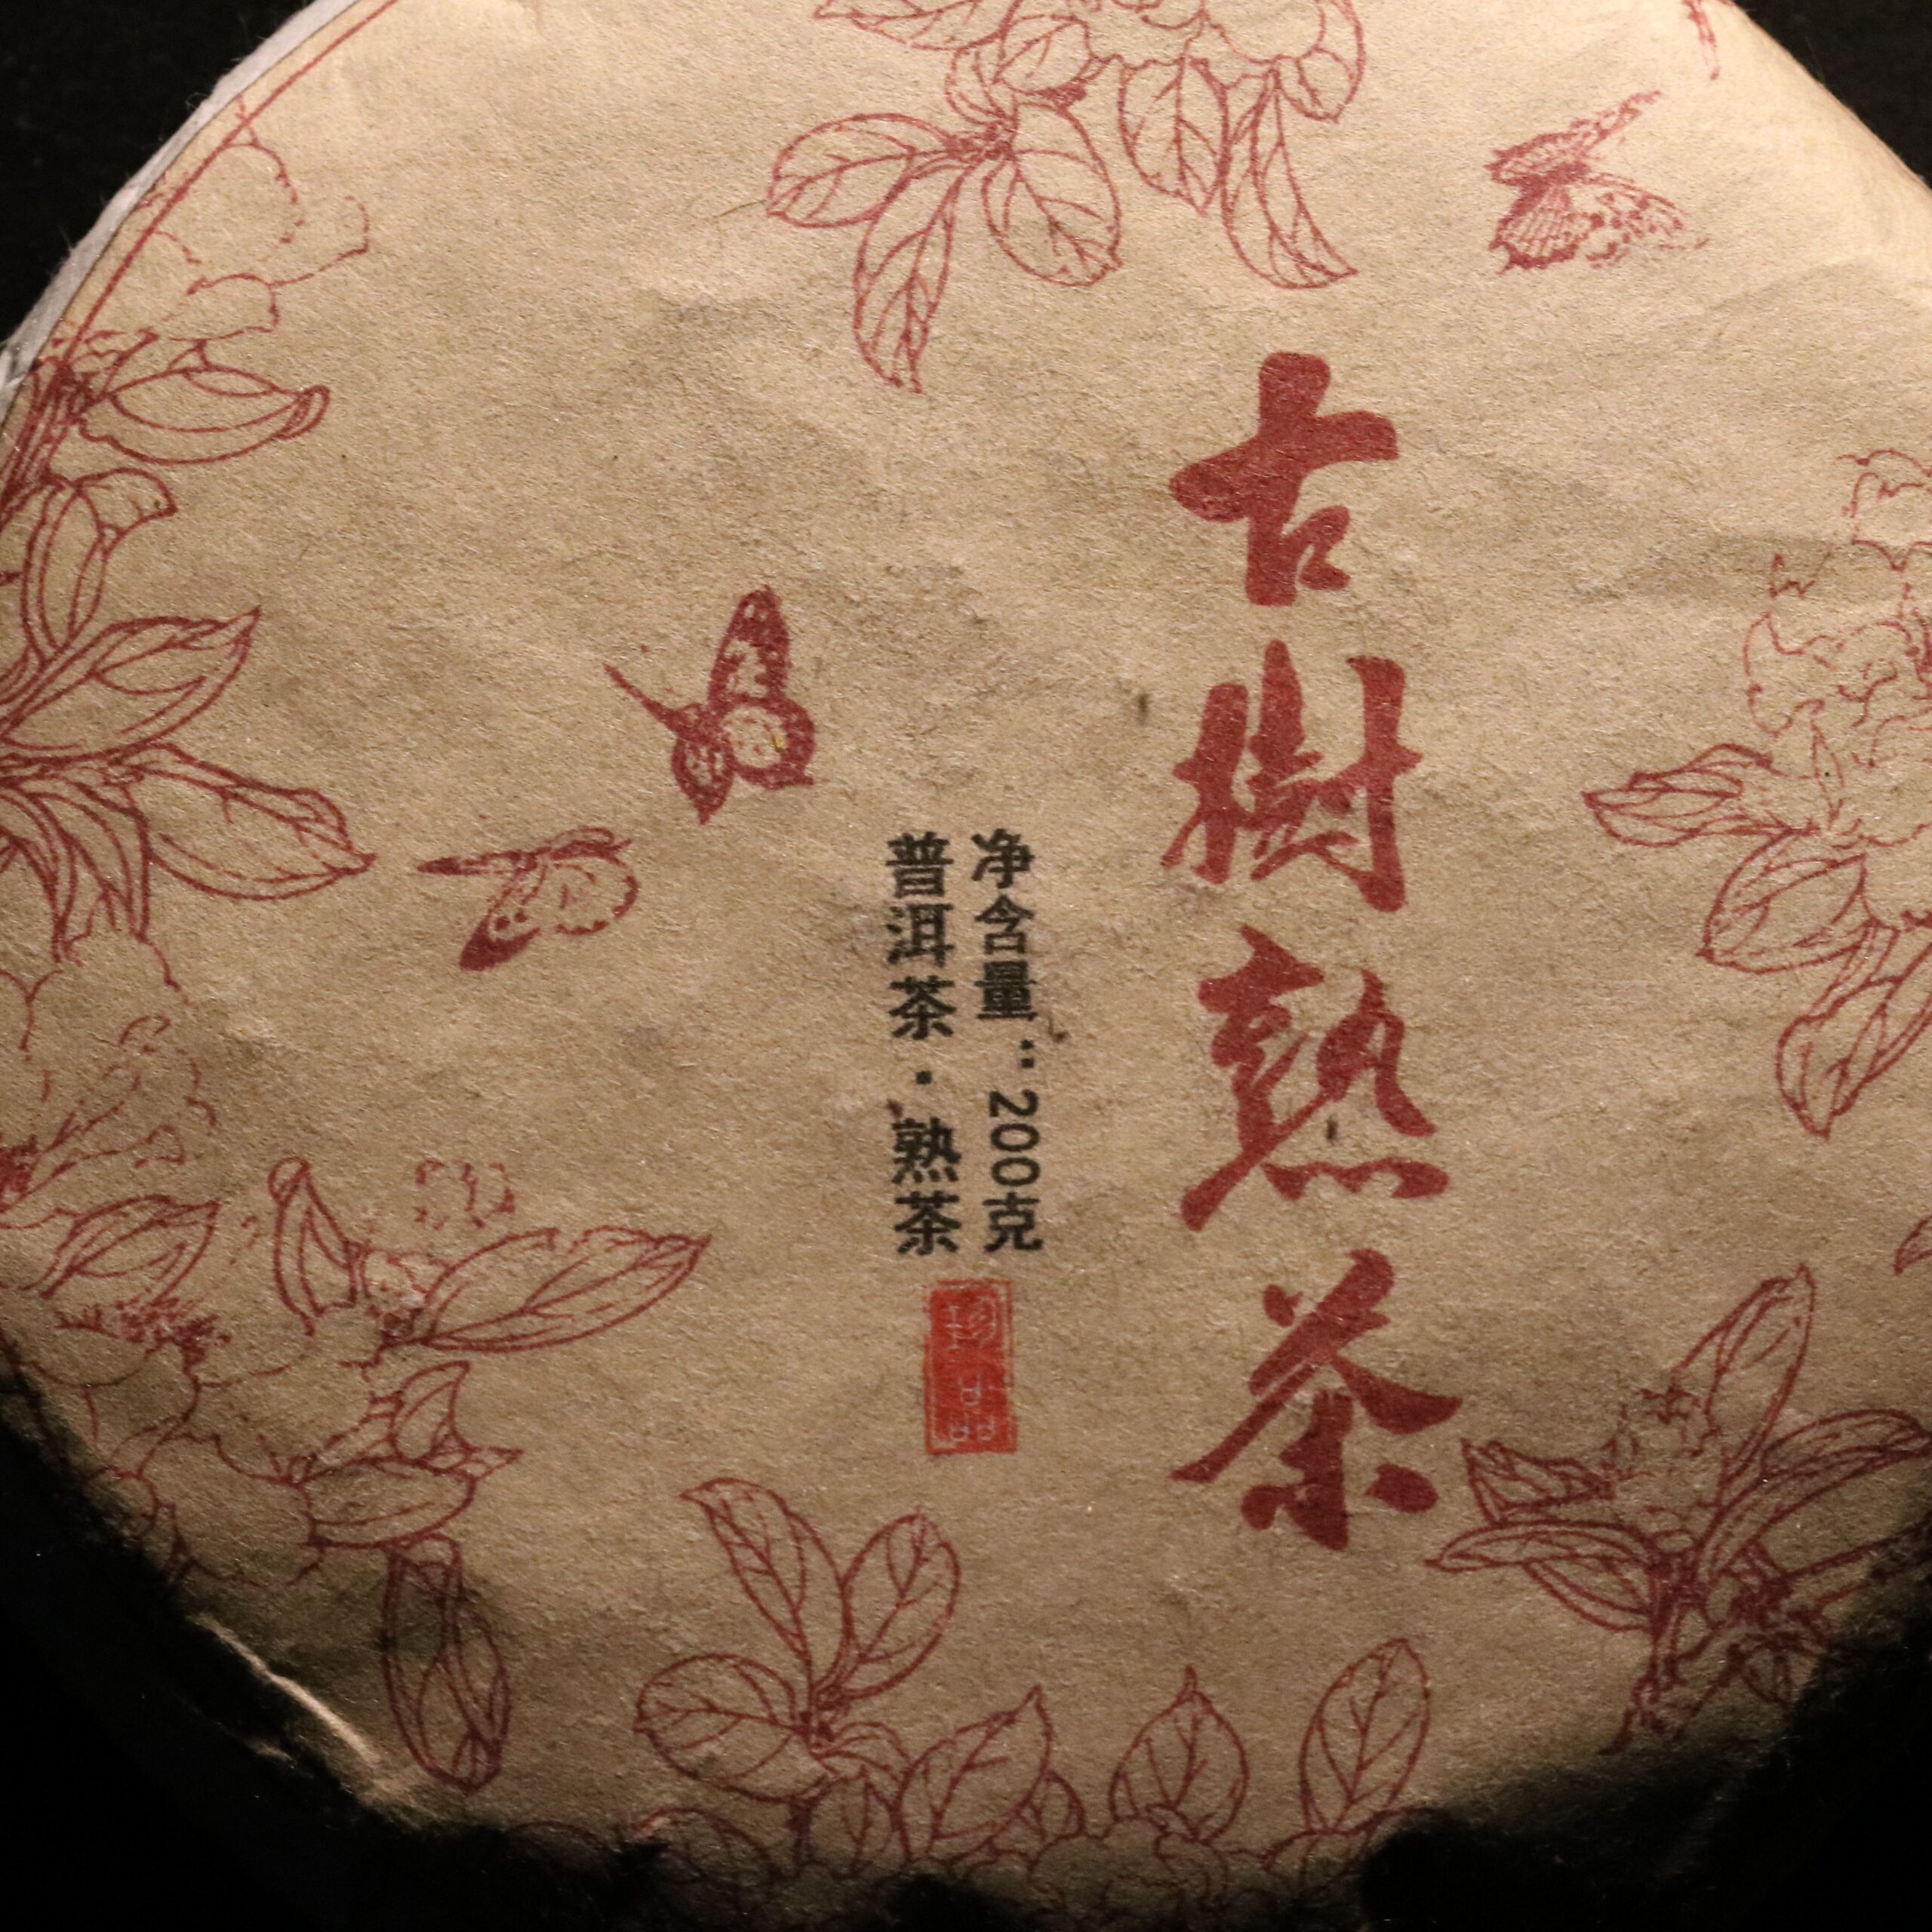 古樹熟茶
净含量：200克
普洱茶·熟茶
珍品